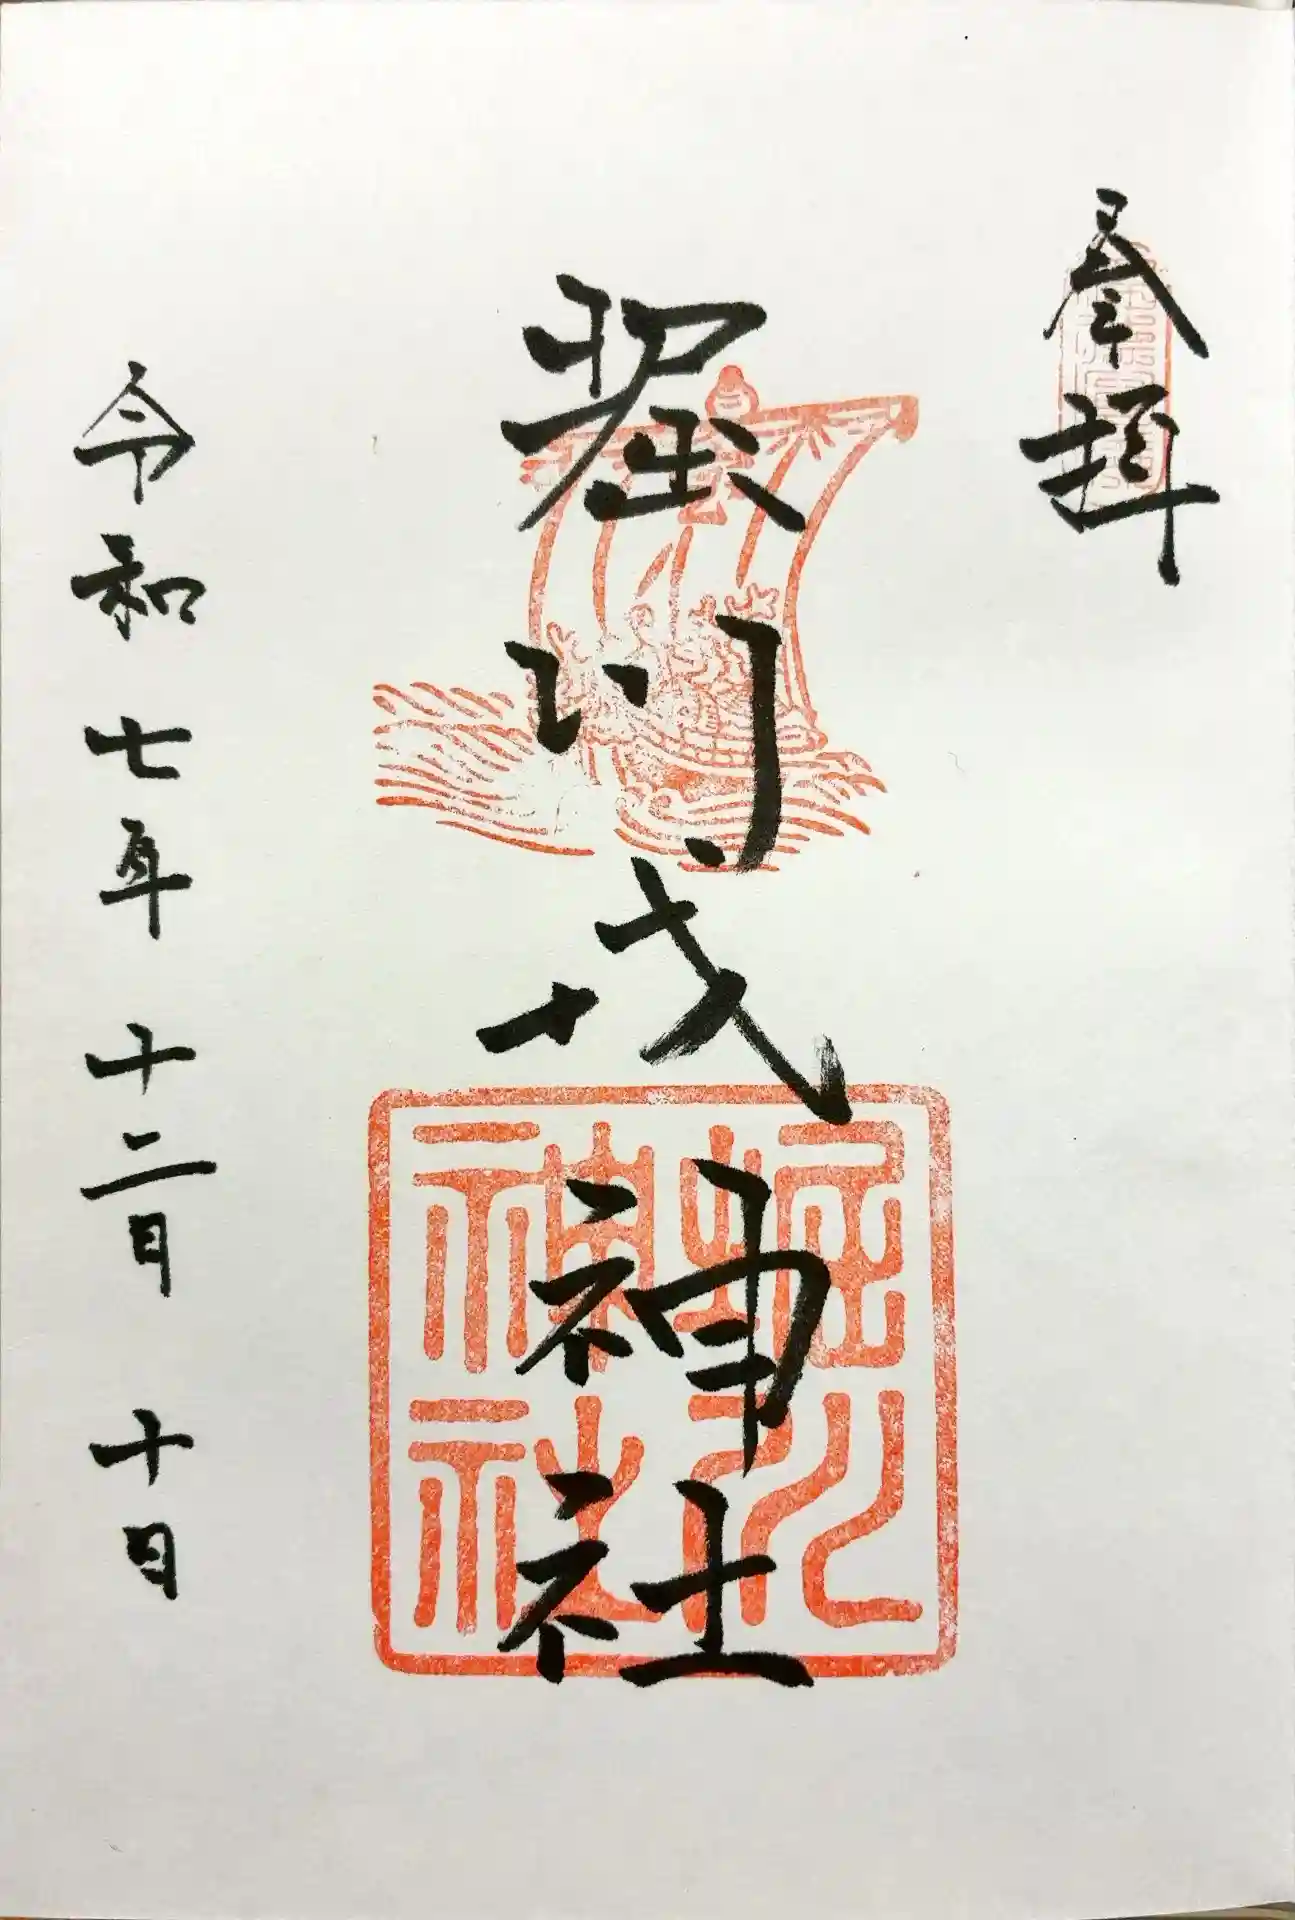 奉拝
堀川戎神社
堀川
神社
令和七年十二月十日